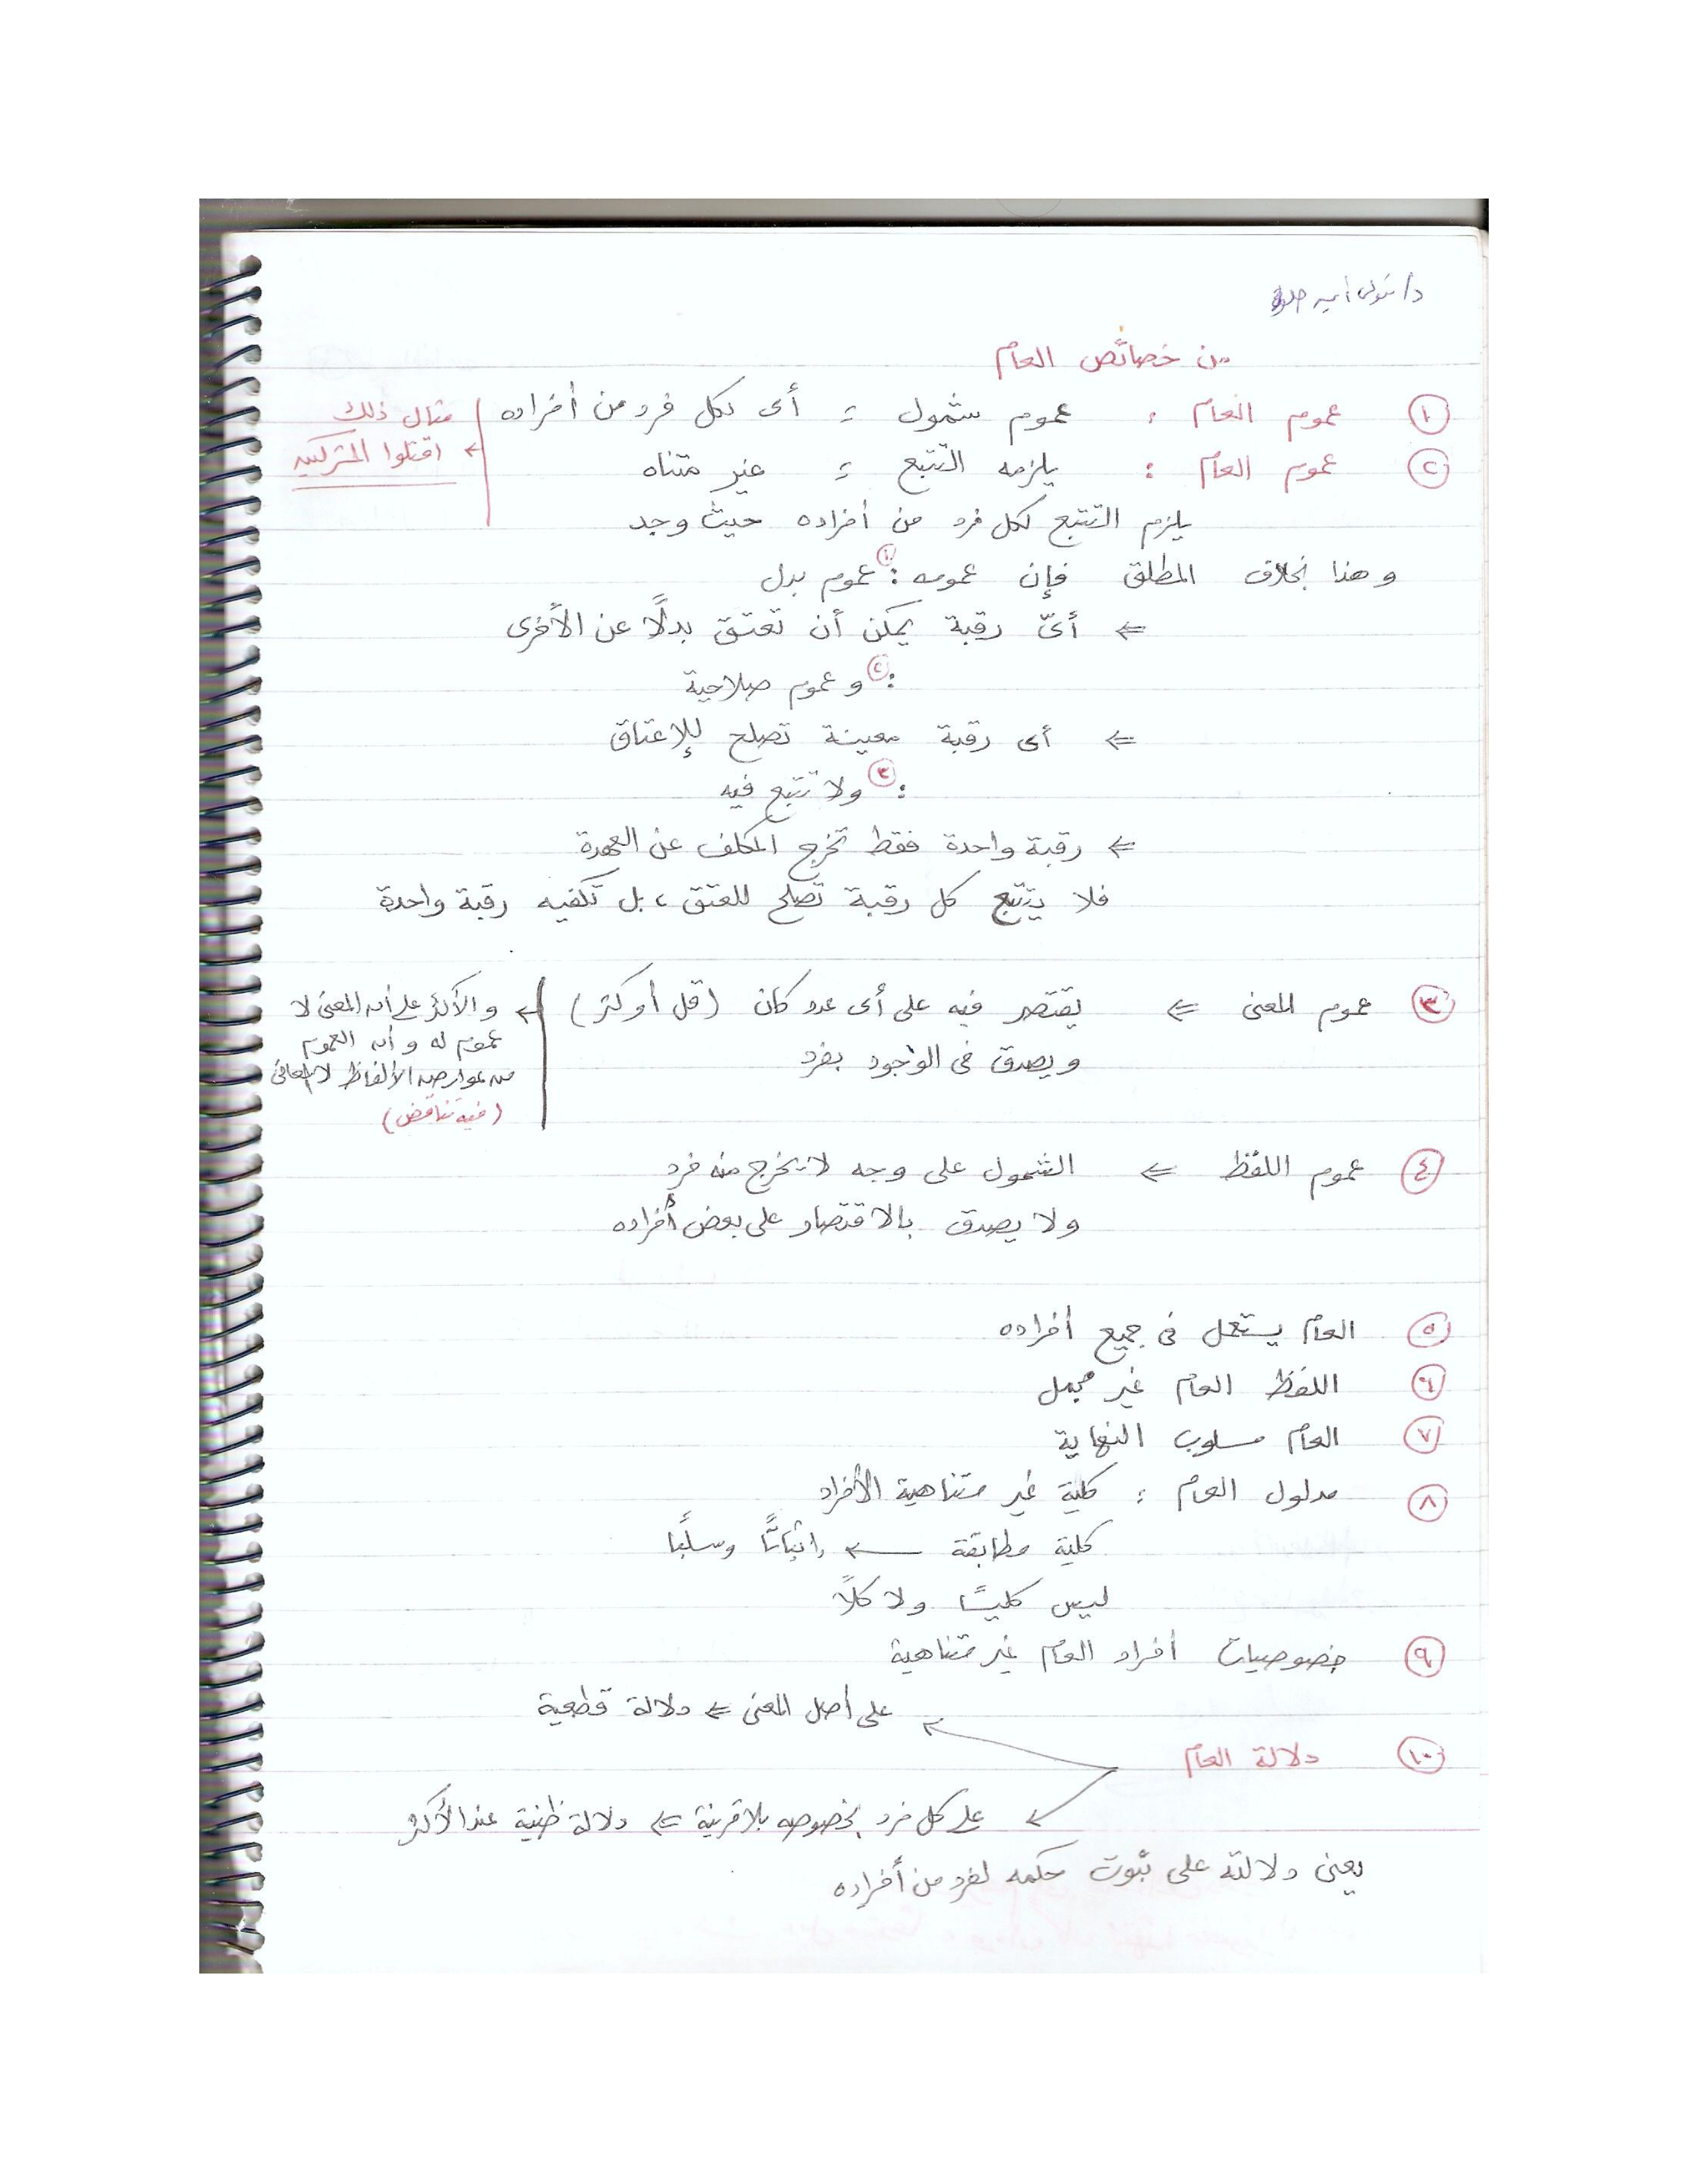 من خصائص العام
① عموم العام : عموم شمول = أى لكل فرد من أفراده
مثال ذلك
② عموم العام : يلزمه التتبع = غير متناه
← اقتلوا المشركين
يلزم التتبع لكل فرد من أفراده حيث وجد
وهذا بخلاف المطلق فإن عمومه : ① عموم بدل
⇐ أىّ رقبة يمكن أن تعتق بدلًا عن الأخرى
: ② وعموم صلاحية
⇐ أى رقبة معينة تصلح للإعتاق
: ③ ولا تتبع فيه
⇐ رقبة واحدة فقط تخرج المكلف عن العهدة
فلا يتتبع كل رقبة تصلح للعتق، بل تكفيه رقبة واحدة
③ عموم المعنى ⇐ يقتصر فيه على أى عدد كان (قل أو كثر)
ويصدق فى الوجود بفرد
⇐ والأكثر على أن المعنى لا
عموم له وأن العموم
من عوارض الألفاظ لا المعانى
(فيه تناقض)
④ عموم اللفظ ⇐ الشمول على وجه لا يخرج منه فرد
ولا يصدق بالاقتصار على بعض أفراده
⑤ العام يستعمل فى جميع أفراده
⑥ اللفظ العام غير مجمل
⑦ العام مسلوب النهاية
⑧ مدلول العام : كلية غير متناهية الأفراد
كلية مطابقة ← إثباتًا وسلبًا
ليس كليًّا ولا كلًا
⑨ خصوصيات أفراد العام غير متناهية
على أصل المعنى ⇐ دلالة قطعية
⑩ دلالة العام
على كل فرد بخصوصه بلا قرينة ⇐ دلالة ظنية عند الأكثر
يعنى دلالته على ثبوت حكمه لفرد من أفراده